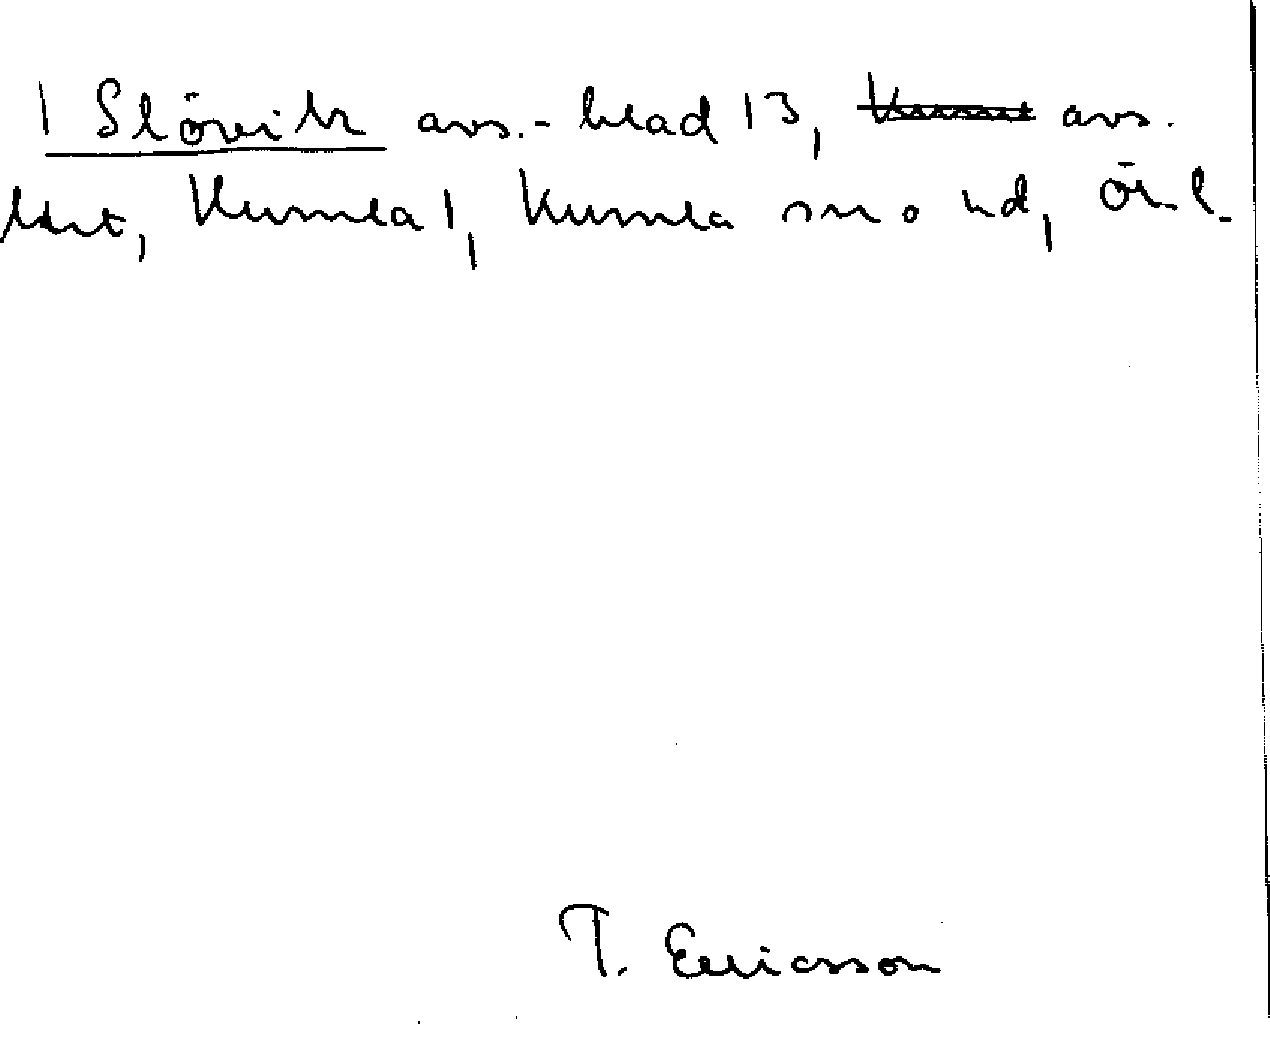 1 Slövik avs.-blad 13, avs.
khrt, Kumla 1, Kumla sn o hd, Örl.
T. Ericsson